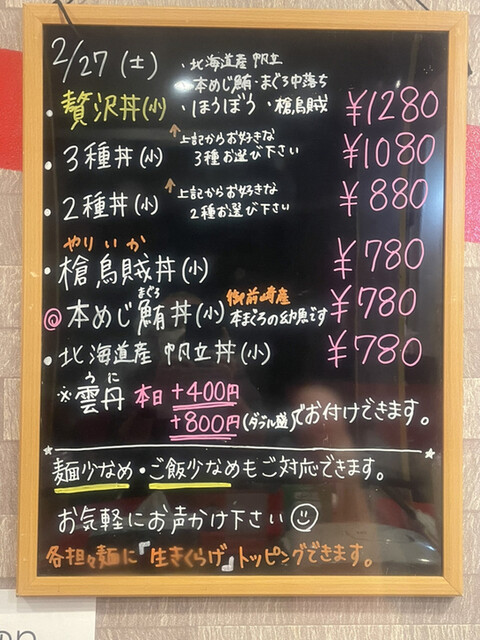 2/27 (土)
・北海道産 帆立
・本めじ鮪・まぐろ中落ち
・贅沢丼(小) ・ほうぼう・槍烏賊 ¥1280
↑上記からお好きな
3種お選び下さい
・3種丼(小) ¥1080
↑上記からお好きな
2種お選び下さい
・2種丼(小) ¥880
やりいか
・槍烏賊丼(小) ¥780
まぐろ
◎本めじ鮪丼(小) 御前崎産 本まぐろの幼魚です ¥780
・北海道産 帆立丼(小) ¥780
うに
※雲丹 本日 +400円
+800円(ダブル盛)でお付けできます。
麺少なめ・ご飯少なめもご対応できます。
お気軽にお声かけ下さい☺
各担々麺に『生きくらげ』トッピングできます。
on